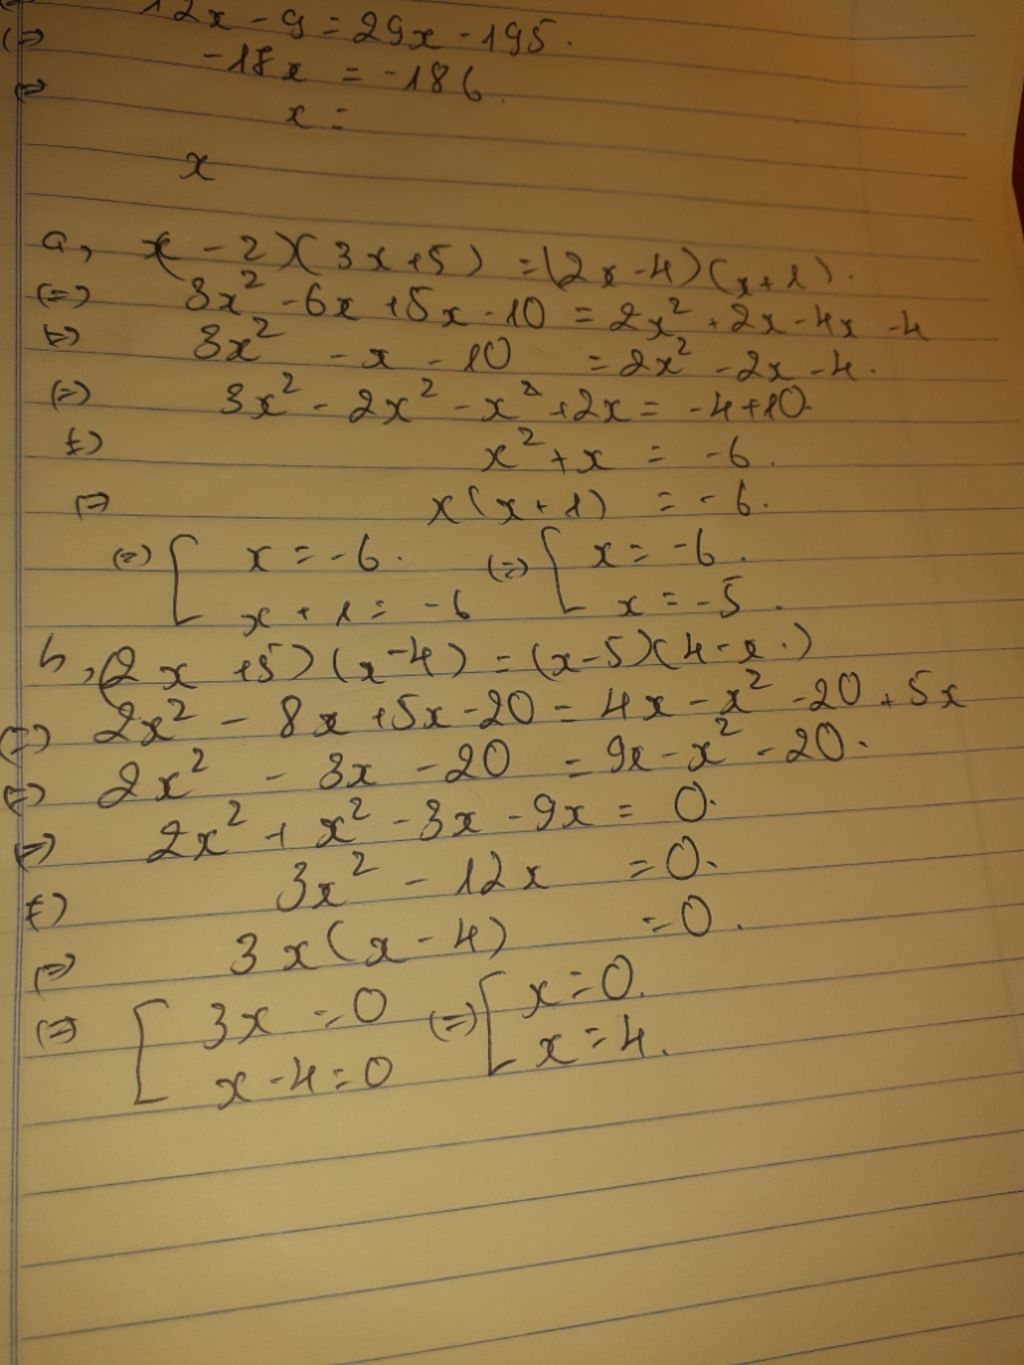 12x - 9 = 29x - 195.
(=) -18x = -186.
(=) x =
x
a, (x - 2)(3x + 5) = (2x - 4)(x + 1).
(=) 3x² - 6x + 5x - 10 = 2x² + 2x - 4x - 4
(=) 3x² - x - 10 = 2x² - 2x - 4.
(=) 3x² - 2x² - x² + 2x = -4 + 10.
(=) x² + x = -6.
(=) x(x + 1) = -6.
(=) [ x = -6. (=) [ x = -6.
x + 1 = -6 x = -5.
b, (2x + 5)(x - 4) = (x - 5)(4 - x.)
(=) 2x² - 8x + 5x - 20 = 4x - x² - 20 + 5x
(=) 2x² - 3x - 20 = 9x - x² - 20.
(=) 2x² + x² - 3x - 9x = 0.
(=) 3x² - 12x = 0.
(=) 3x(x - 4) = 0.
(=) [ 3x = 0 (=) [ x = 0.
x - 4 = 0 x = 4.